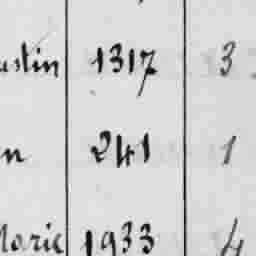 ustin 1317 3
n 241 1
Marie 1933 4